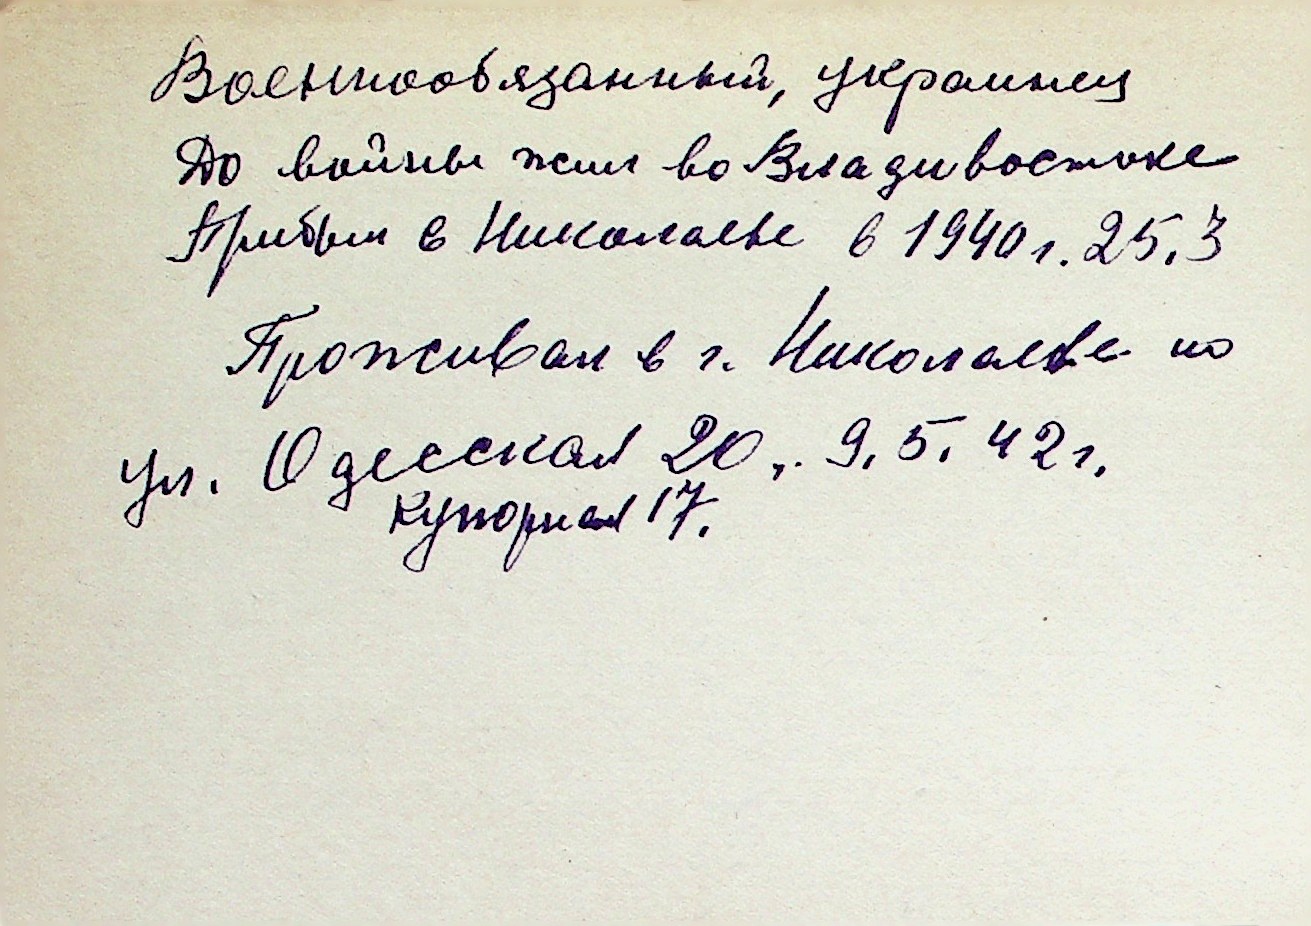 Военнообязанный, украинец
До войны жил во Владивостоке
Прибыл в Николаеве в 1940 г. 25.3
Проживал в г. Николаеве по
ул. Одесская 20,. 9.5.42 г.
Купорная 17.